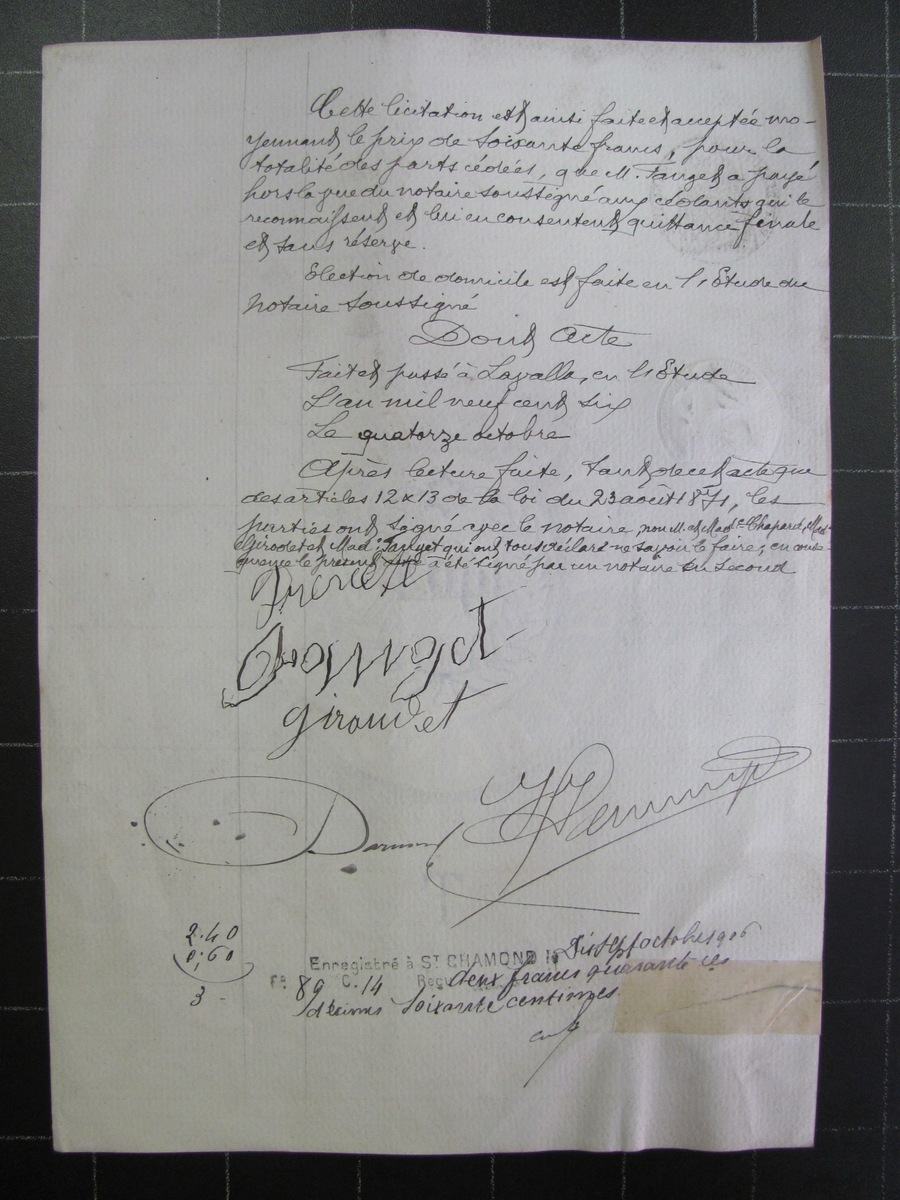 Cette licitation est ainsi faite et acceptée mo-
yennant le prix de Soixante francs, pour la
totalité des parts cédées, que M. Tanget a payé
hors la vue du notaire soussigné aux cédants qui le
reconnaissent et lui en consentent quittance finale
et sans réserve.
Election de domicile est faite en l'Etude du
notaire soussigné
Dont Acte
Fait et passé à Lavalla, en l'Etude
L'an mil neuf cent six
Le quatorze octobre
Après lecture faite, tant de cet acte que
des articles 12 & 13 de la loi du 23 août 1871, les
parties ont signé avec le notaire, non M. et Made Chapard, Mad
Giroudet et Made Tanget qui ont tous déclaré ne savoir le faire, en consé-
quence le présent acte a été signé par un notaire en second
Tanget
Giroudet
2.40
0,60
3 -
Enregistré à ST CHAMOND le Dix sept octobre 1906
F° 89 C. 14 Reçu deux francs quarante ces
décimes Soixante centimes.